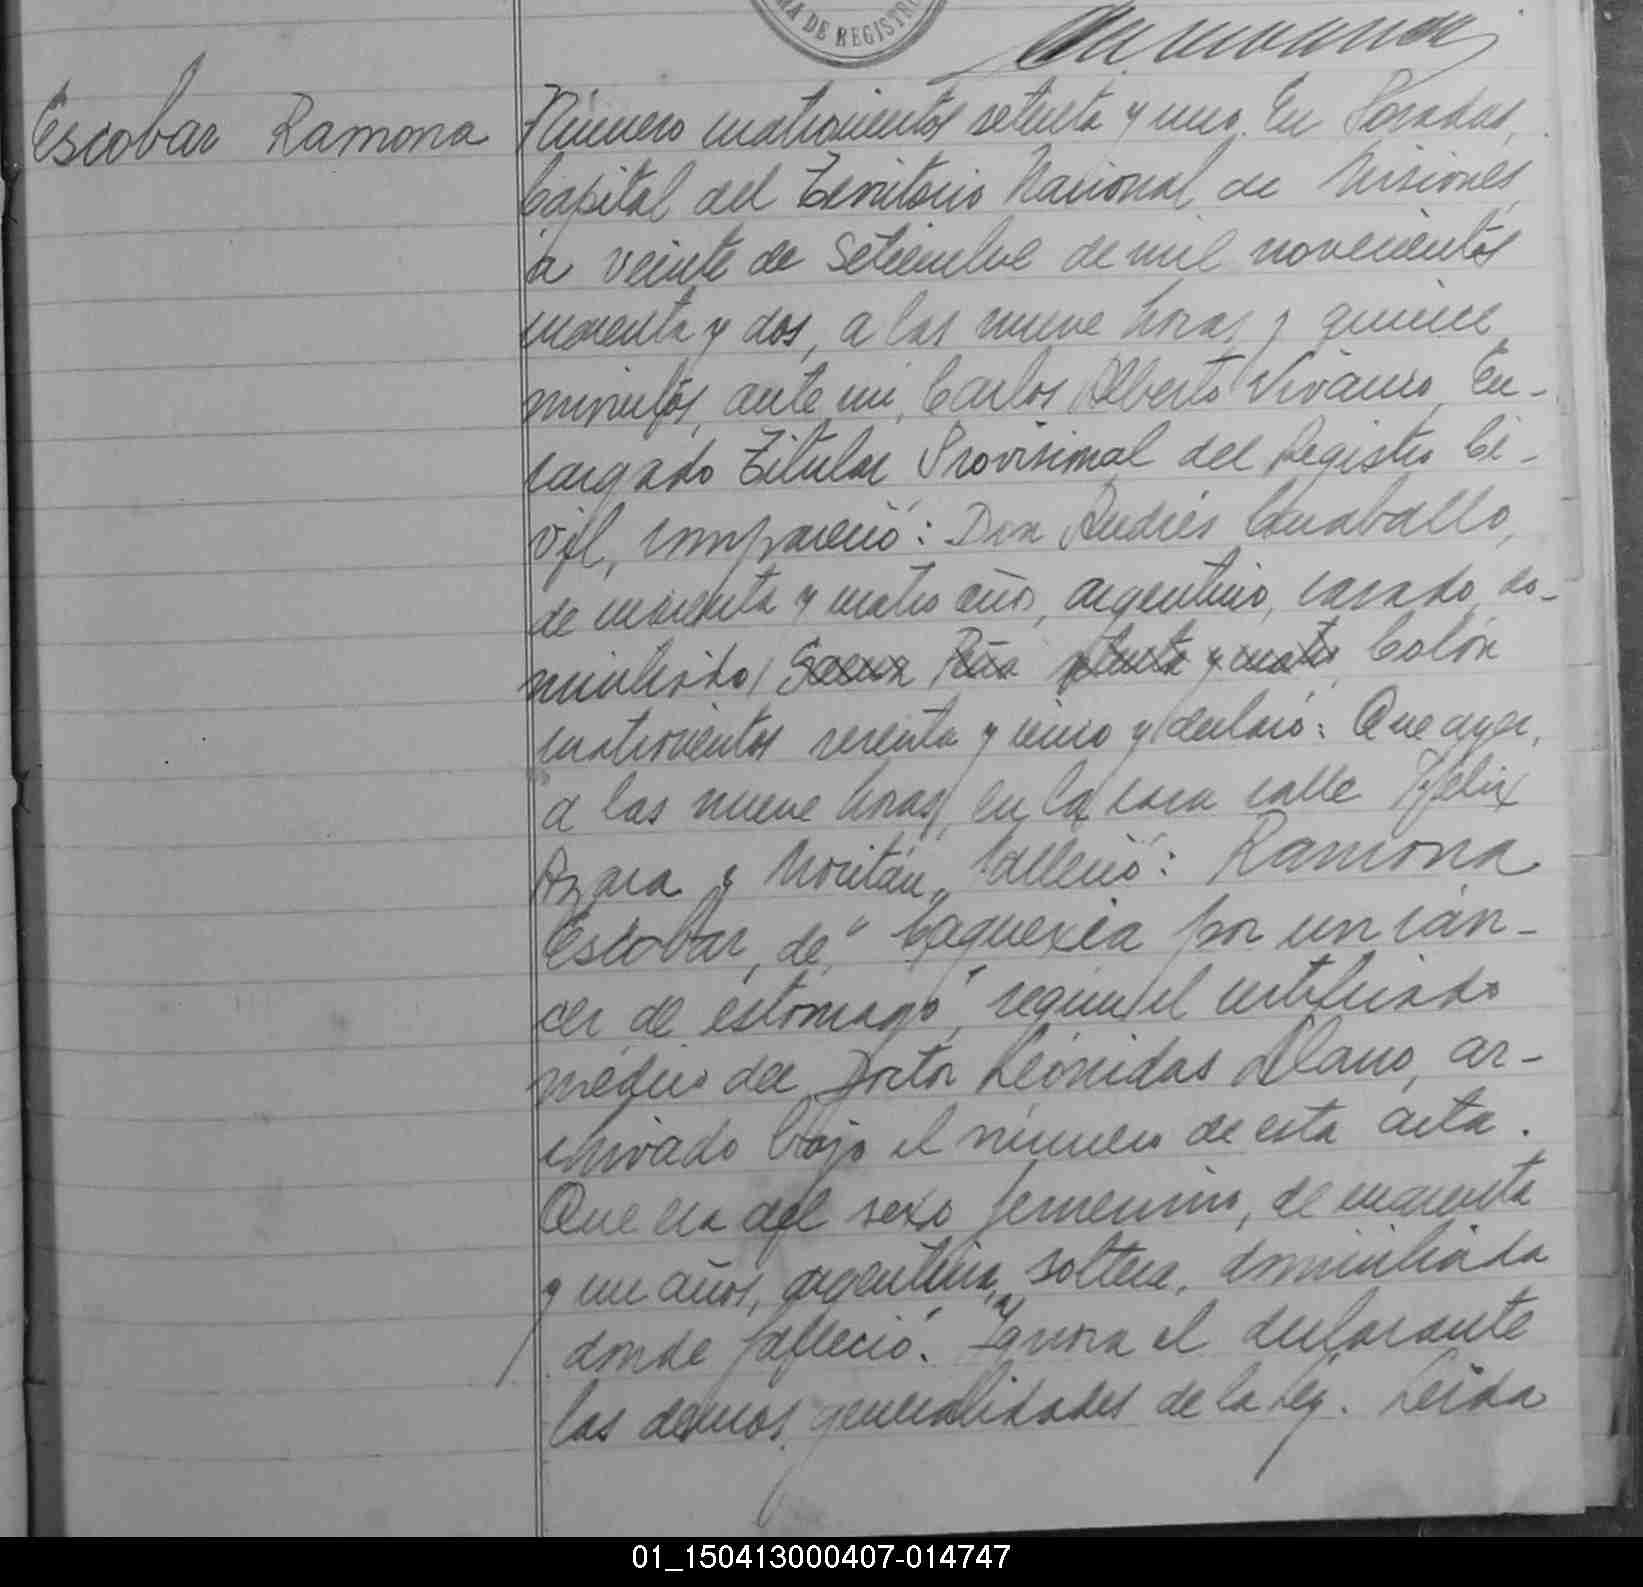 MA DE REGISTR
Escobar Ramona
Número cuatrocientos setenta y uno. En Posadas,
Capital del Territorio Nacional de Misiones
a veinte de Setiembre de mil novecientos
cuarenta y dos, a las nueve horas y quince
minutos, ante mi, Carlos Alberto Vivanco, En-
cargado Titular Provisional del Registro Ci-
vil, compareció: Don Andrés Caraballo,
de cuarenta y cuatro años, argentino, casado, do-
miciliado Saenz Peña y cuatro, Colón
cuatrocientos sesenta y cinco y declaró: Que ayer,
a las nueve horas, en la casa calle Félix
Azara y Moritán, falleció: Ramona
Escobar, de "Caquexia por un cán-
cer de estomago", según el certificado
médico del Doctor Leónidas Llano, ar-
chivado bajo el número de esta acta.
Que era del sexo femenino, de cuarenta
y un años, argentina, soltera, domiciliada
donde falleció. Ignora el declarante
las demas generalidades de la Ley. Leída
01_150413000407-014747